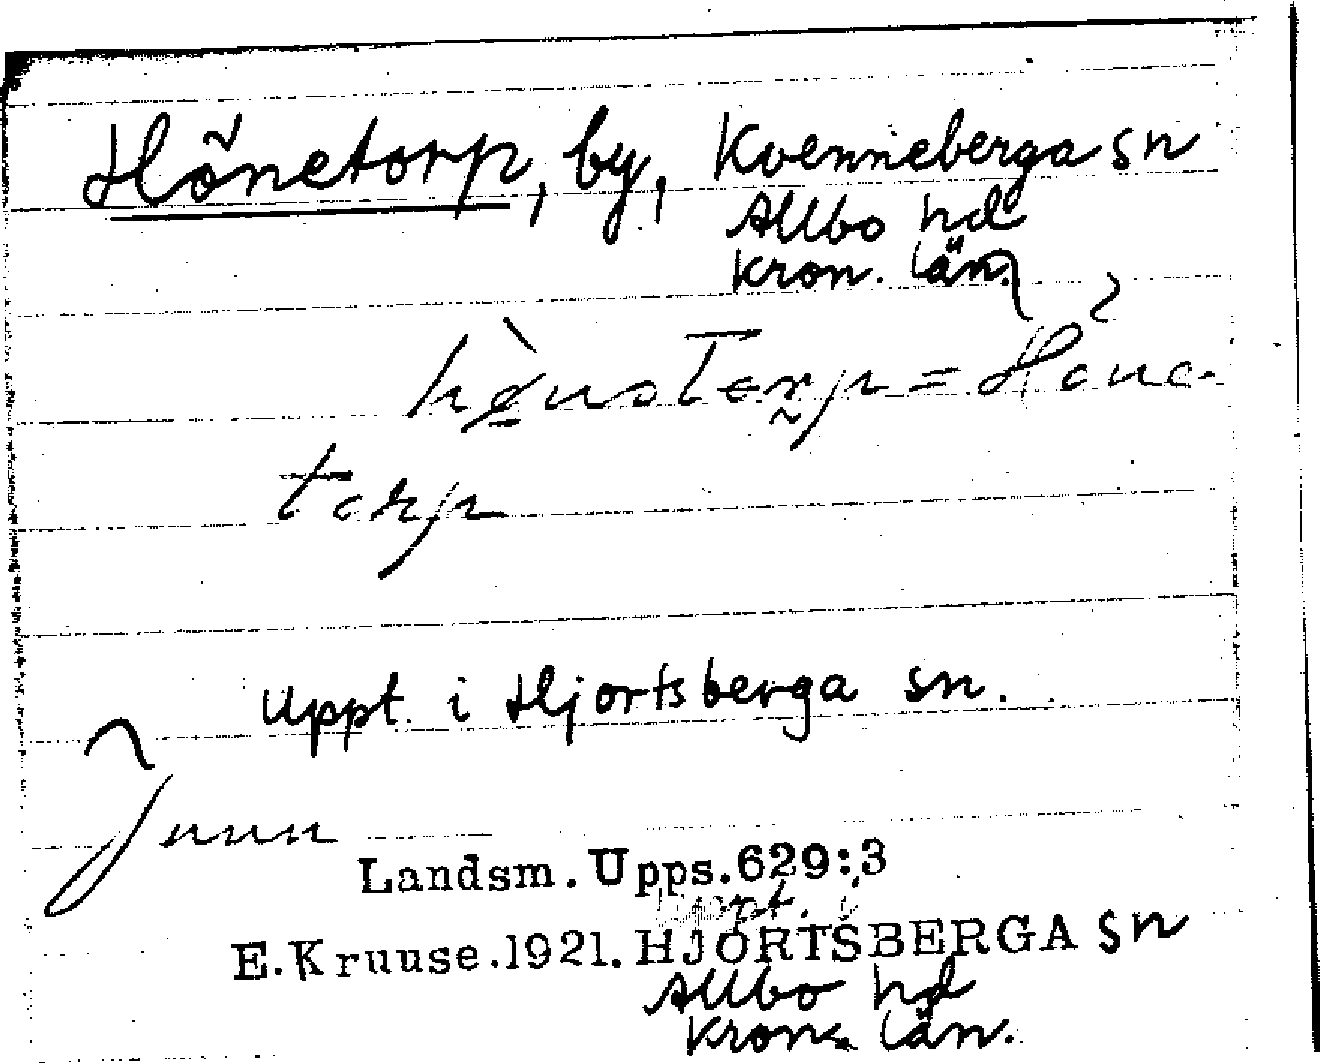 Hönetorp, by, Kvenneberga sn
Allbo hd
Kron. län.
= Höne-
torp
Uppt. i Hjortsberga sn.
Landsm. Upps. 629:3
Uppt. i
E. Kruuse. 1921. HJORTSBERGA sn
Allbo hd
Kron. län.